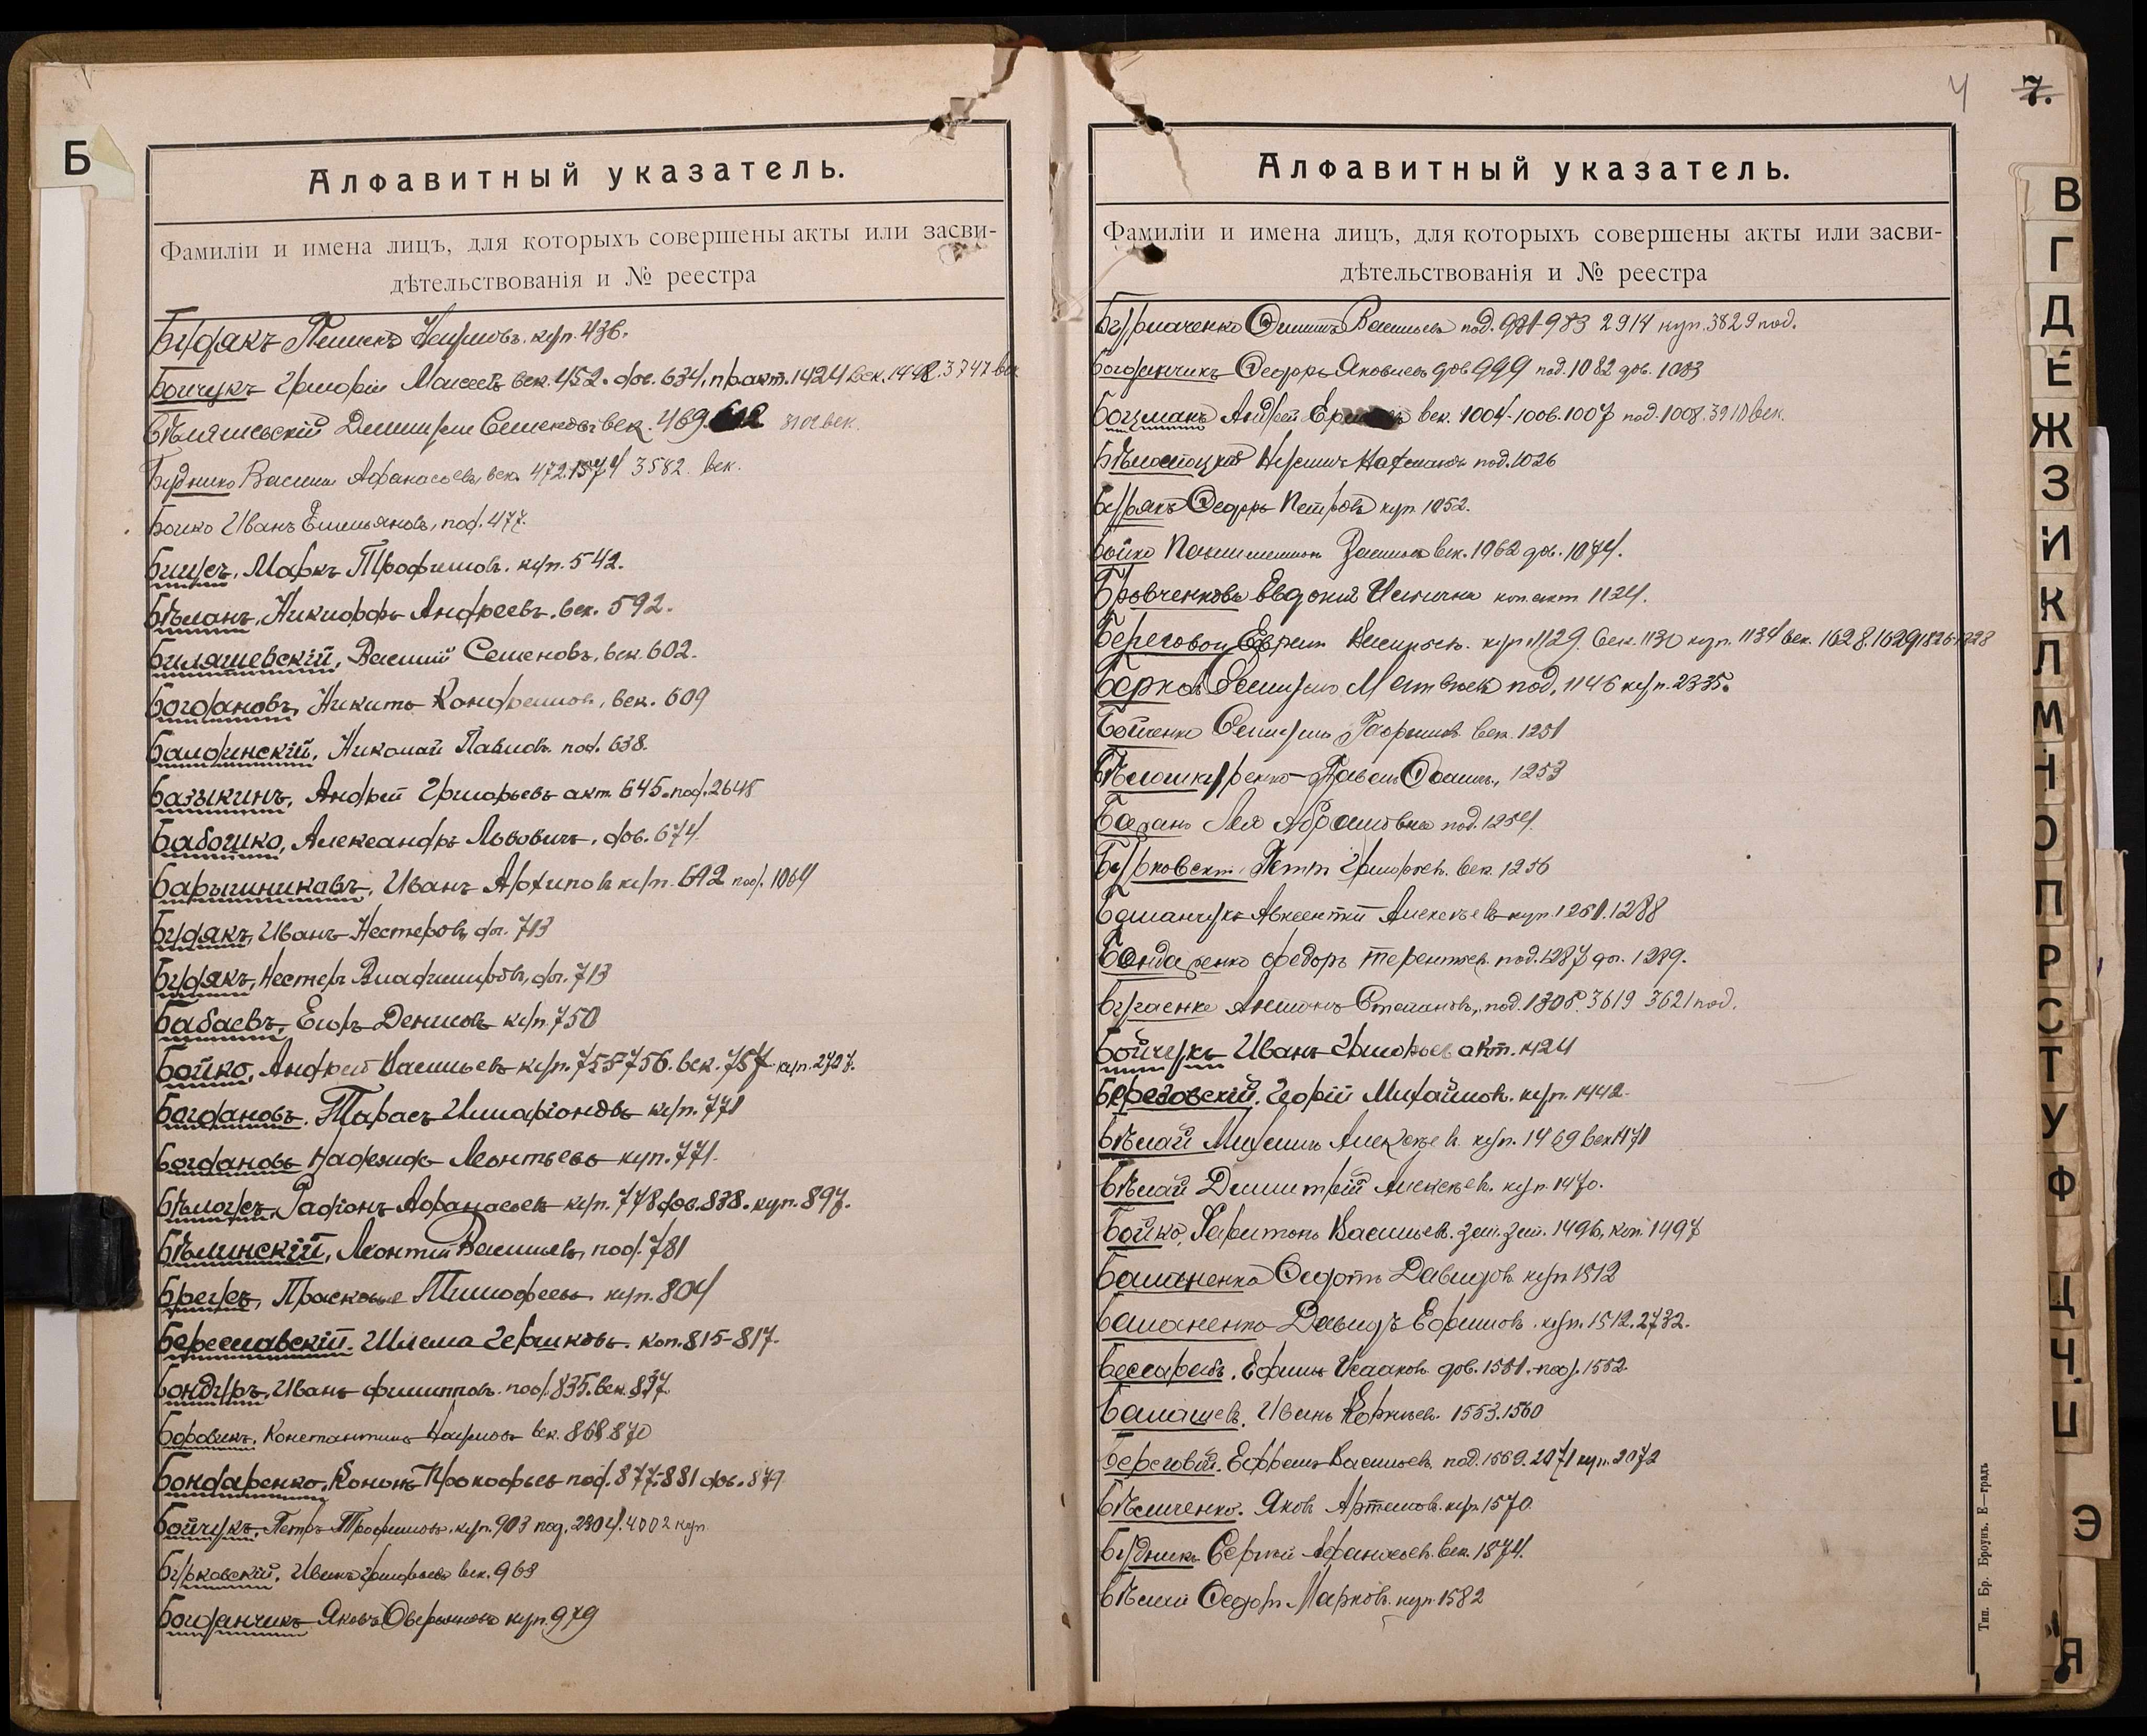 Б
Алфавитный указатель.
Фамиліи и имена лицъ, для которыхъ совершены акты или засви-
дѣтельствованія и № реестра
Будякъ Наумовъ. куп. 436.
Бойчукъ Григорій Моисеевъ век. 452. дов. 634, пр. акт. 1424 век. 1498. 3747 век
Бѣляшевскій Димитрій Семеновъ век. 469. век.
Будника Василій Афанасьевъ, век. 472. 1574 3582. век.
Бойко Иванъ Емельяновъ, под. 477.
Бицусъ, Маркъ Трофимовъ. куп. 542.
Бѣланъ, Никифоръ Андреевъ. век. 592.
Биляшевскій, Василій Семеновъ, век. 602.
Богдановъ, Никита век. 609
Балдинскій, Николай Павловъ. под. 638.
Базыкинъ, Андрей Григорьевъ акт. 645. под. 2645
Бабошко, Александръ Львовичъ, дов. 674.
Иванъ Архиповъ куп. 692 под. 1064
Будякъ, Иванъ Нестеровъ, дог. 713
Будякъ, Нестеръ Владимировъ, дог. 713
Бабаевъ, Егоръ Денисовъ куп. 750
Бойко, Андрей Васильевъ куп. 755-756. век. 757 куп. 2707.
Богдановъ, Тарасъ Илларіоновъ куп. 771
Богданова Надежда Леонтьева куп. 771.
Бѣлоусъ, Радіонъ Афанасьевъ куп. 778 дов. 838. куп. 897.
Бѣлинскій, Леонтій Васильевъ, под. 781
Брегусъ, Прасковья Тимофеева куп. 804
Береславскій. Шлема Гершковъ. коп. 815-817.
Бондурь, Иванъ Филипповъ. под. 835. век. 837.
Боровикъ, Константинъ Наумовъ век. 868. 870
Бондаренко, Кононъ Прокофьевъ под. 877-881 дов. 879
Бойчукъ, Петръ Трофимовъ. куп. 903 под. 2304. 4002 куп
Бурковскій. Иванъ Григорьевъ век. 968
Богданчикъ Яковъ Оверьяновъ куп. 979
4 7.
Алфавитный указатель.
Фамиліи и имена лицъ, для которыхъ совершены акты или засви-
дѣтельствованія и № реестра
Васильевъ под. 981-983 2914 куп. 3829 под.
Богданчикъ Федоръ Яковлевъ дов 999 под. 1082 дов. 1083
Боцманъ Андрей век. 1004-1006. 1007 под. 1008. 3910 век.
под. 1026
Бурякъ Федоръ Петровъ куп. 1052.
Бойко век. 1062 дов. 1074.
Бровченкова Евдокия Ильинична коп. акт. 1124.
Береговой Ефремъ Васильевъ. куп. 1129. век. 1130 куп. 1134 век. 1628. 1629 1826 1828
Матвѣевъ под. 1146 куп. 2335.
Бойченко век. 1251
Бѣлошкуренко Павелъ 1253
Лея Абрамовна под. 1254.
Бурковскій Петръ Григорьев. век. 1256
Авксентій Алексѣевъ куп. 1251. 1288
Бондаренко Федоръ Терентьев. под. 1287 дог. 1289.
Бугаенко Степановъ, под. 1305. 3619 3621 под.
Бойчукъ Иванъ Григорьевъ акт. 1424
Березовскій, Георгій Михайлов. куп. 1442.
Бѣлай Михаилъ Алексѣев. куп. 1469 век 1471
Бѣлай Димитрій Алексѣев. куп. 1470.
Бойко, Харитонъ Васильев. 1496, коп. 1497
Федотъ Давидов. куп. 1512
Давидъ Ефимовъ. куп. 1512. 2732.
Бессарабъ. Ефимъ Исааков. дов. 1551. под. 1552.
Балашевъ, Иванъ Корнѣев. 1553. 1560
Береговій. Ефремъ Васильев. под. 1569. 2071 куп. 2072
Бѣличенко. Яков Артемов. куп. 1570.
Будникъ Сергѣй Афанасьев. век. 1574.
Бѣлій Федоръ Марков. куп. 1582
Тип. Бр. Броунъ. Е—градъ
В
Г
Д
Е
Ж
З
И
К
Л
М
Н
О
П
Р
С
Т
У
Ф
Ц
Ч
Э
Я